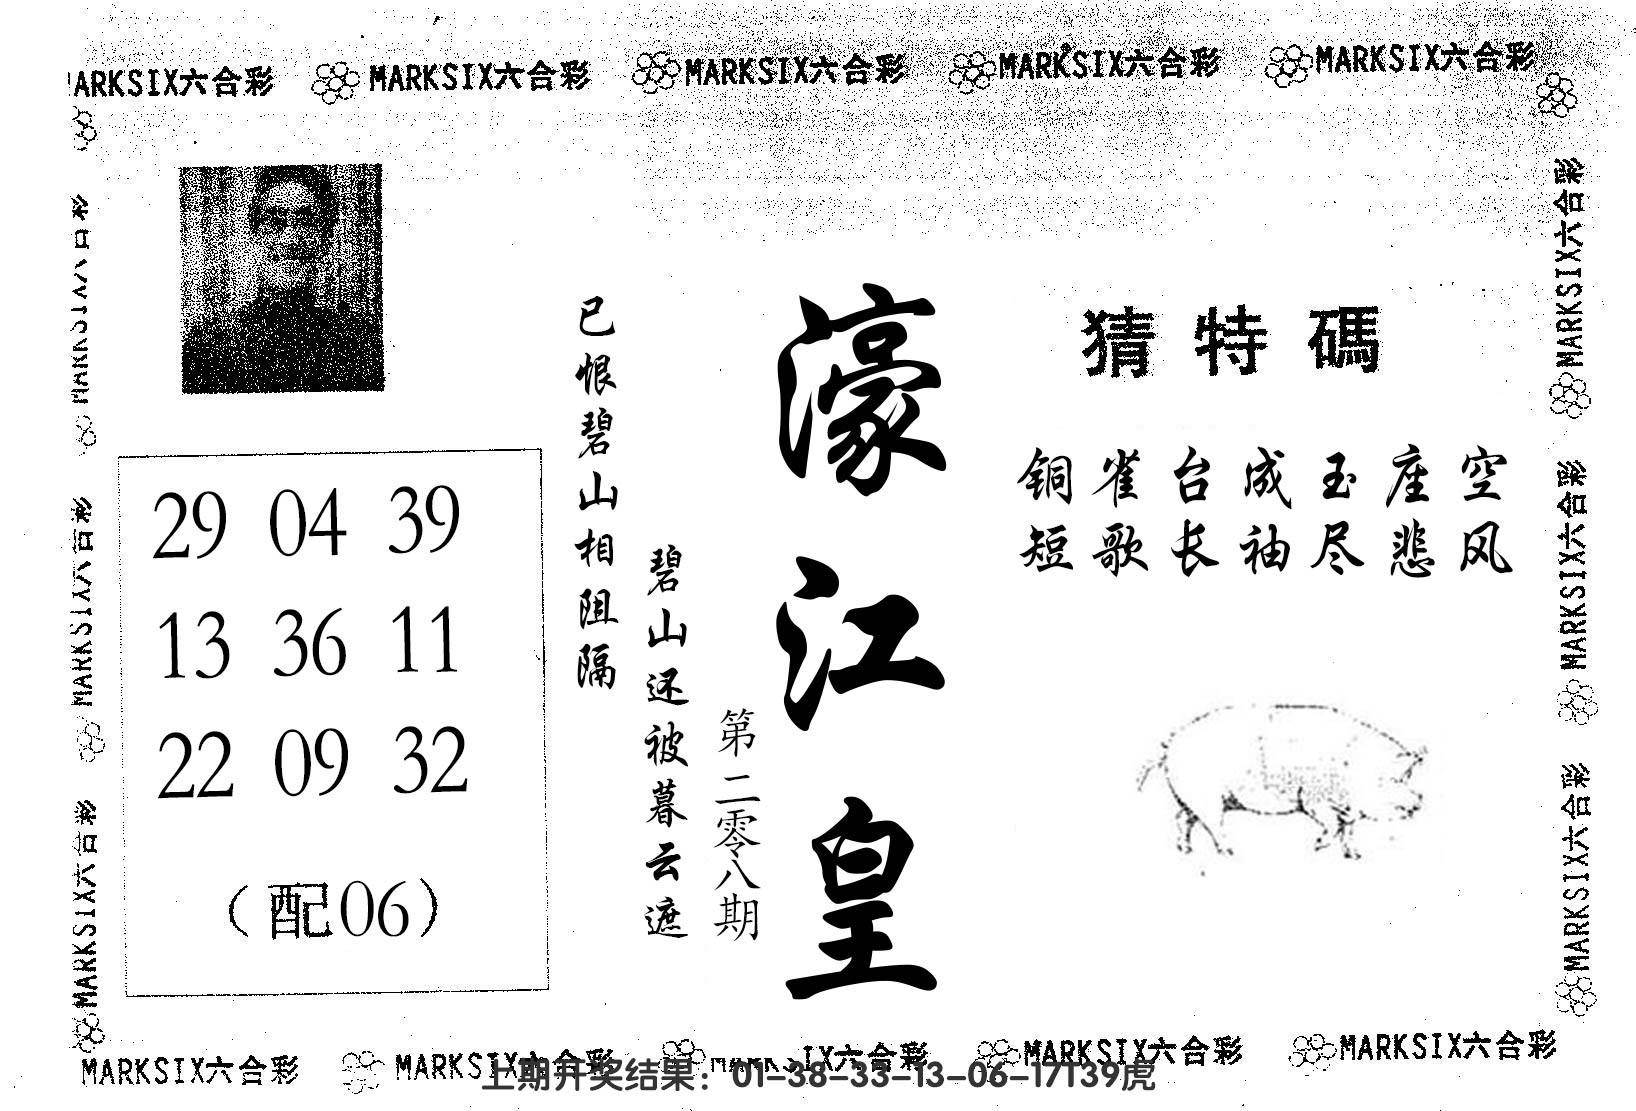 MARKSIX六合彩 MARKSIX六合彩 MARKSIX六合彩 MARKSIX六合彩 MARKSIX六合彩
猜特碼
铜雀台成玉座空
短歌长袖尽悲风
濠江皇
第二零八期
碧山还被暮云遮
已恨碧山相阻隔
29 04 39
13 36 11
22 09 32
（配06）
MARKSIX六合彩
MARKSIX六合彩
MARKSIX六合彩
MARKSIX六合彩
MARKSIX六合彩
MARKSIX六合彩
MARKSIX六合彩 MARKSIX六合彩 MARKSIX六合彩 MARKSIX六合彩 MARKSIX六合彩
上期开奖结果：01-38-33-13-06-17T39虎